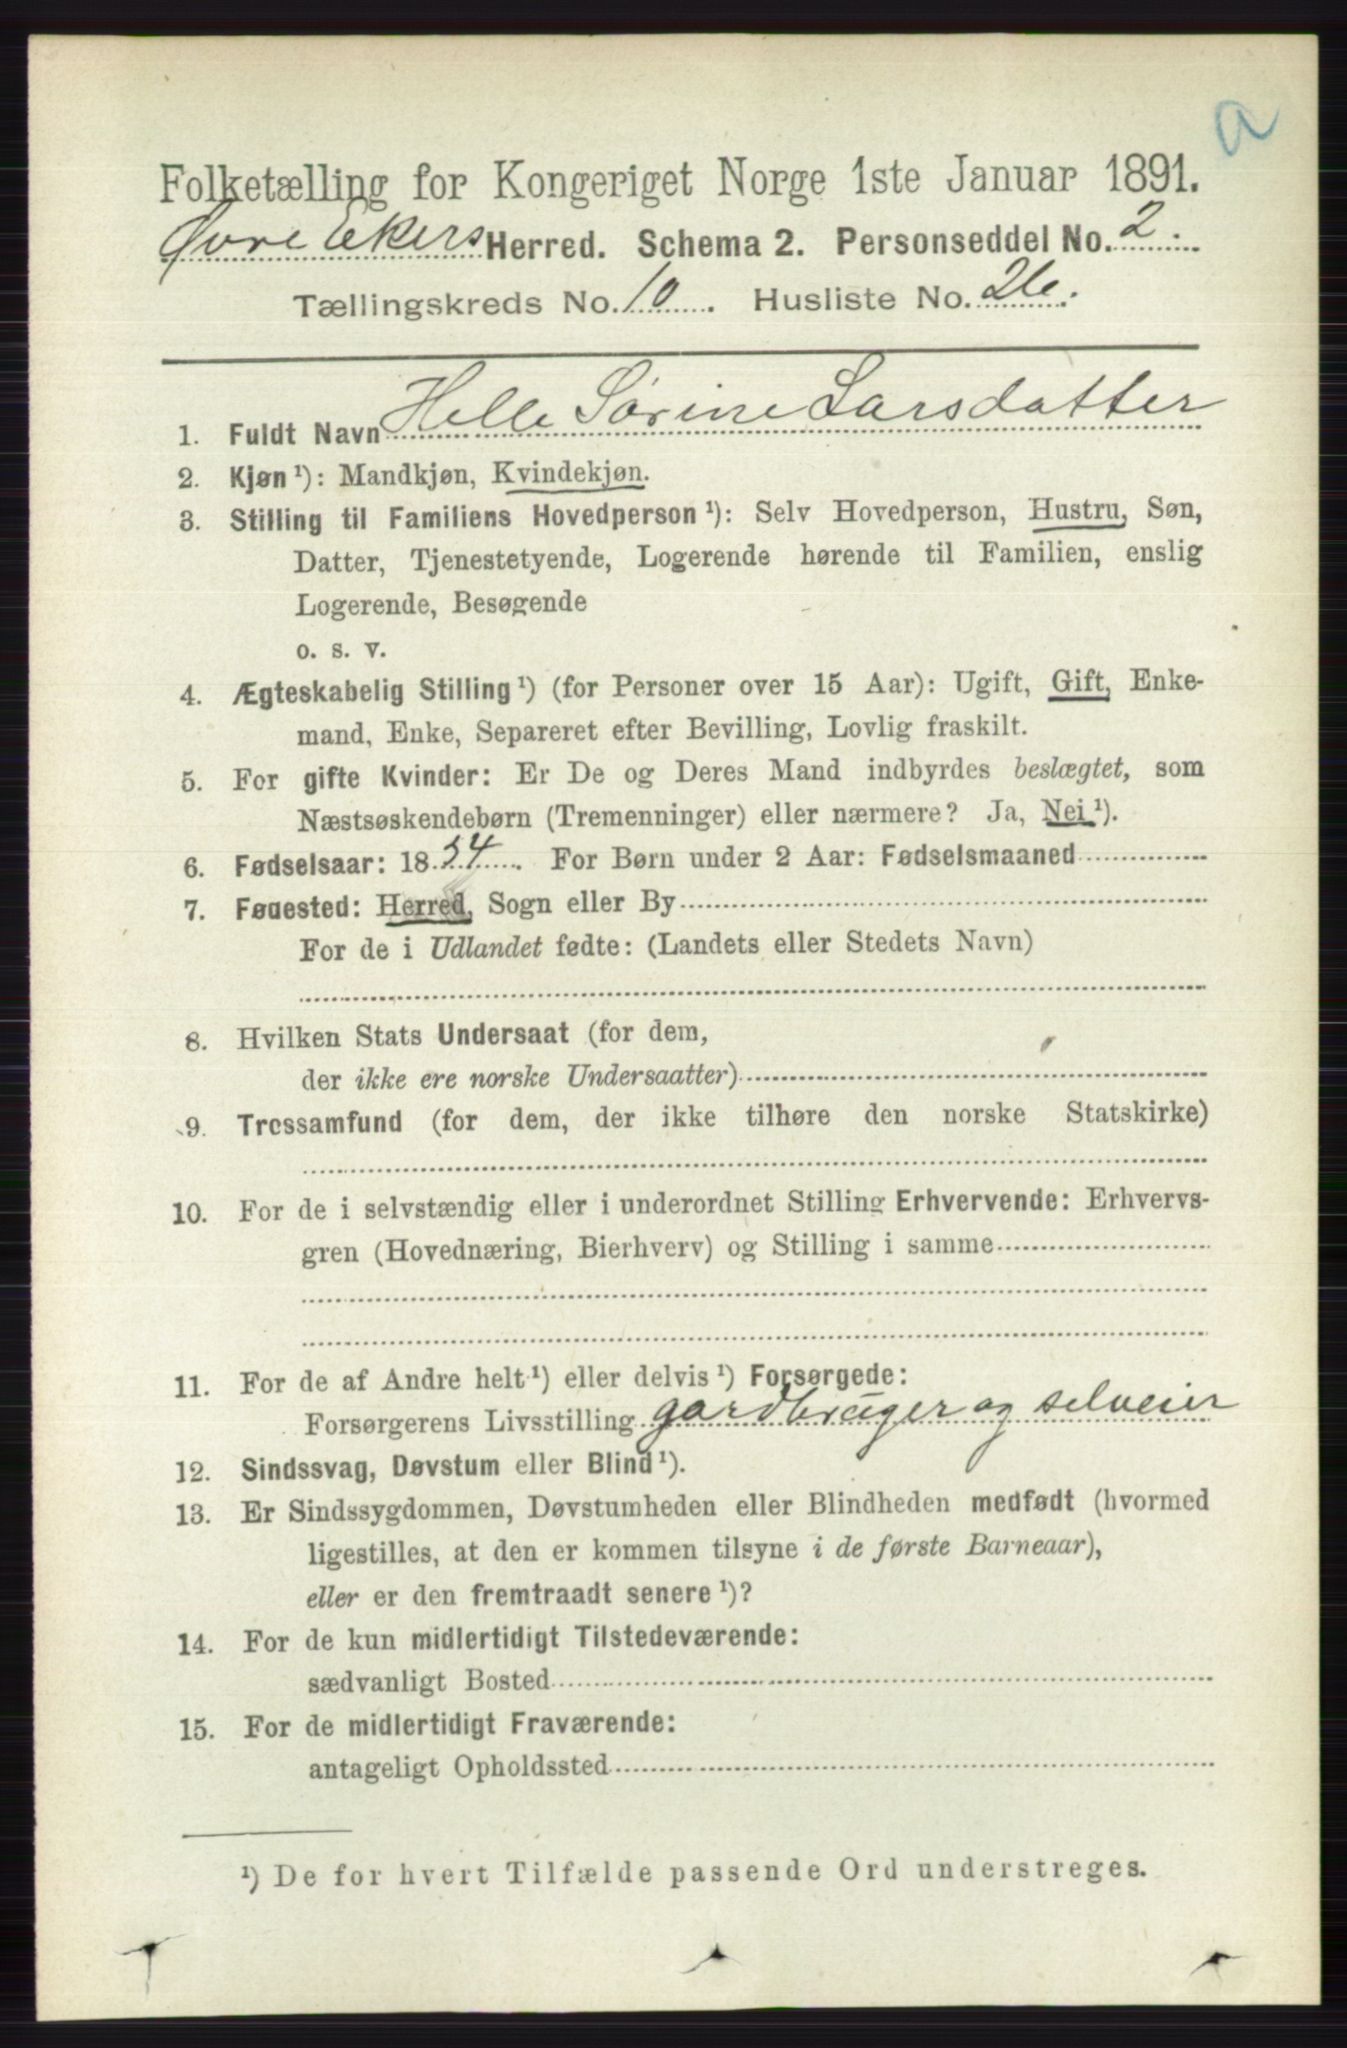 a
Folketælling for Kongeriget Norge 1ste Januar 1891.
Øvre Ekers Herred. Schema 2. Personseddel No. 2.
Tællingskreds No. 10. Husliste No. 26.
1. Fuldt Navn Helle Sørine Larsdatter
2. Kjøn ¹): Mandkjøn, Kvindekjøn.
3. Stilling til Familiens Hovedperson ¹): Selv Hovedperson, Hustru, Søn,
Datter, Tjenestetyende, Logerende hørende til Familien, enslig
Logerende, Besøgende
o. s. v.
4. Ægteskabelig Stilling ¹) (for Personer over 15 Aar): Ugift, Gift, Enke-
mand, Enke, Separeret efter Bevilling, Lovlig fraskilt.
5. For gifte Kvinder: Er De og Deres Mand indbyrdes beslægtet, som
Næstsøskendebørn (Tremenninger) eller nærmere? Ja, Nei ¹).
6. Fødselsaar: 1834. For Børn under 2 Aar: Fødselsmaaned
7. Føuested: Herred, Sogn eller By
For de i Udlandet fødte: (Landets eller Stedets Navn)
8. Hvilken Stats Undersaat (for dem,
der ikke ere norske Undersaatter)
9. Trossamfund (for dem, der ikke tilhøre den norske Statskirke)
10. For de i selvstændig eller i underordnet Stilling Erhvervende: Erhvervs-
gren (Hovednæring, Bierhverv) og Stilling i samme
11. For de af Andre helt ¹) eller delvis ¹) Forsørgede:
Forsørgerens Livsstilling gardbruger og selveier
12. Sindssvag, Døvstum eller Blind ¹).
13. Er Sindssygdommen, Døvstumheden eller Blindheden medfødt (hvormed
ligestilles, at den er kommen tilsyne i de første Barneaar),
eller er den fremtraadt senere ¹)?
14. For de kun midlertidigt Tilstedeværende:
sædvanligt Bosted
15. For de midlertidigt Fraværende:
antageligt Opholdssted
¹) De for hvert Tilfælde passende Ord understreges.